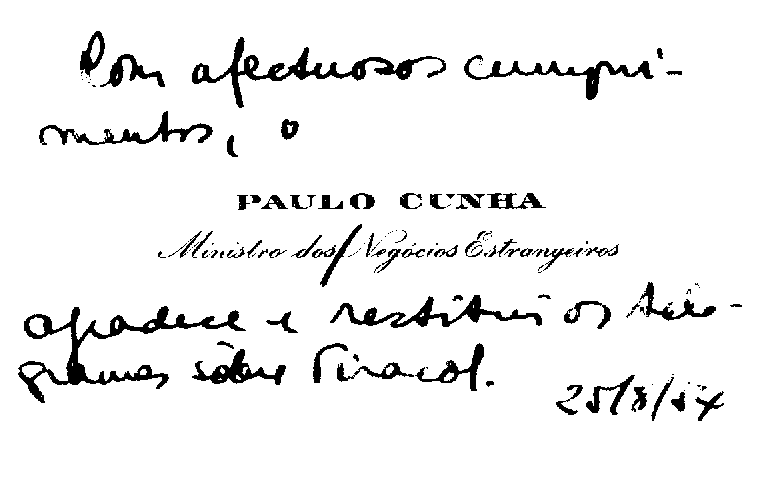 Com afectuosos cumpri-
mentos, o
PAULO CUNHA
Ministro dos Negócios Estrangeiros
agradece e restitui os tele-
gramas sôbre Tiracol.
25/8/54